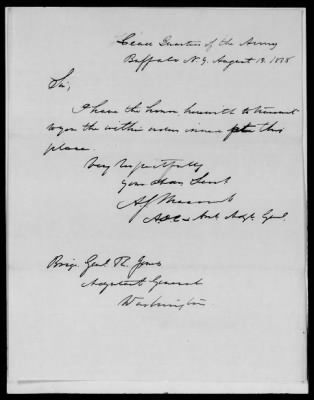 Head Quarters of the Army
Buffalo N.Y. August 13. 1838
Sir,
I have the honor, herewith to transmit
to you the within orders issued from this
place.
Very respectfully
Your Obdt. Servt
A Macomb
ADC & Act Adjt. Genl.
Brig. Genl. R. Jones
Adjutant General
Washington